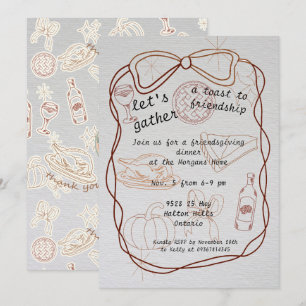 let's
gather
a toast to
friendship
Join us for a friendsgiving
dinner
at the Morgans Home
Nov. 5 from 6-9 pm
9528 25 Hwy
Halton Hills
Ontario
Kindly RSVP by November 10th
to Kelly at
Thank you